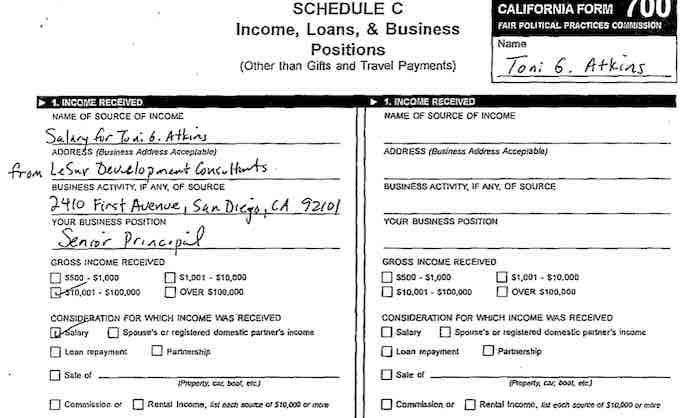 SCHEDULE C
Income, Loans, & Business
Positions
(Other than Gifts and Travel Payments)
CALIFORNIA FORM 700
FAIR POLITICAL PRACTICES COMMISSION
Name
Toni G. Atkins
► 1. INCOME RECEIVED
NAME OF SOURCE OF INCOME
Salary for Toni G. Atkins
ADDRESS (Business Address Acceptable)
from LeSar Development Consultants
BUSINESS ACTIVITY, IF ANY, OF SOURCE
2410 First Avenue, San Diego, CA 92101
YOUR BUSINESS POSITION
Senior Principal
GROSS INCOME RECEIVED
$500 - $1,000 $1,001 - $10,000
$10,001 - $100,000 OVER $100,000
CONSIDERATION FOR WHICH INCOME WAS RECEIVED
Salary Spouse's or registered domestic partner's income
Loan repayment Partnership
Sale of
(Property, car, boat, etc.)
Commission or Rental Income, list each source of $10,000 or more
► 1. INCOME RECEIVED
NAME OF SOURCE OF INCOME
ADDRESS (Business Address Acceptable)
BUSINESS ACTIVITY, IF ANY, OF SOURCE
YOUR BUSINESS POSITION
GROSS INCOME RECEIVED
$500 - $1,000 $1,001 - $10,000
$10,001 - $100,000 OVER $100,000
CONSIDERATION FOR WHICH INCOME WAS RECEIVED
Salary Spouse's or registered domestic partner's income
Loan repayment Partnership
Sale of
(Property, car, boat, etc.)
Commission or Rental Income, list each source of $10,000 or more